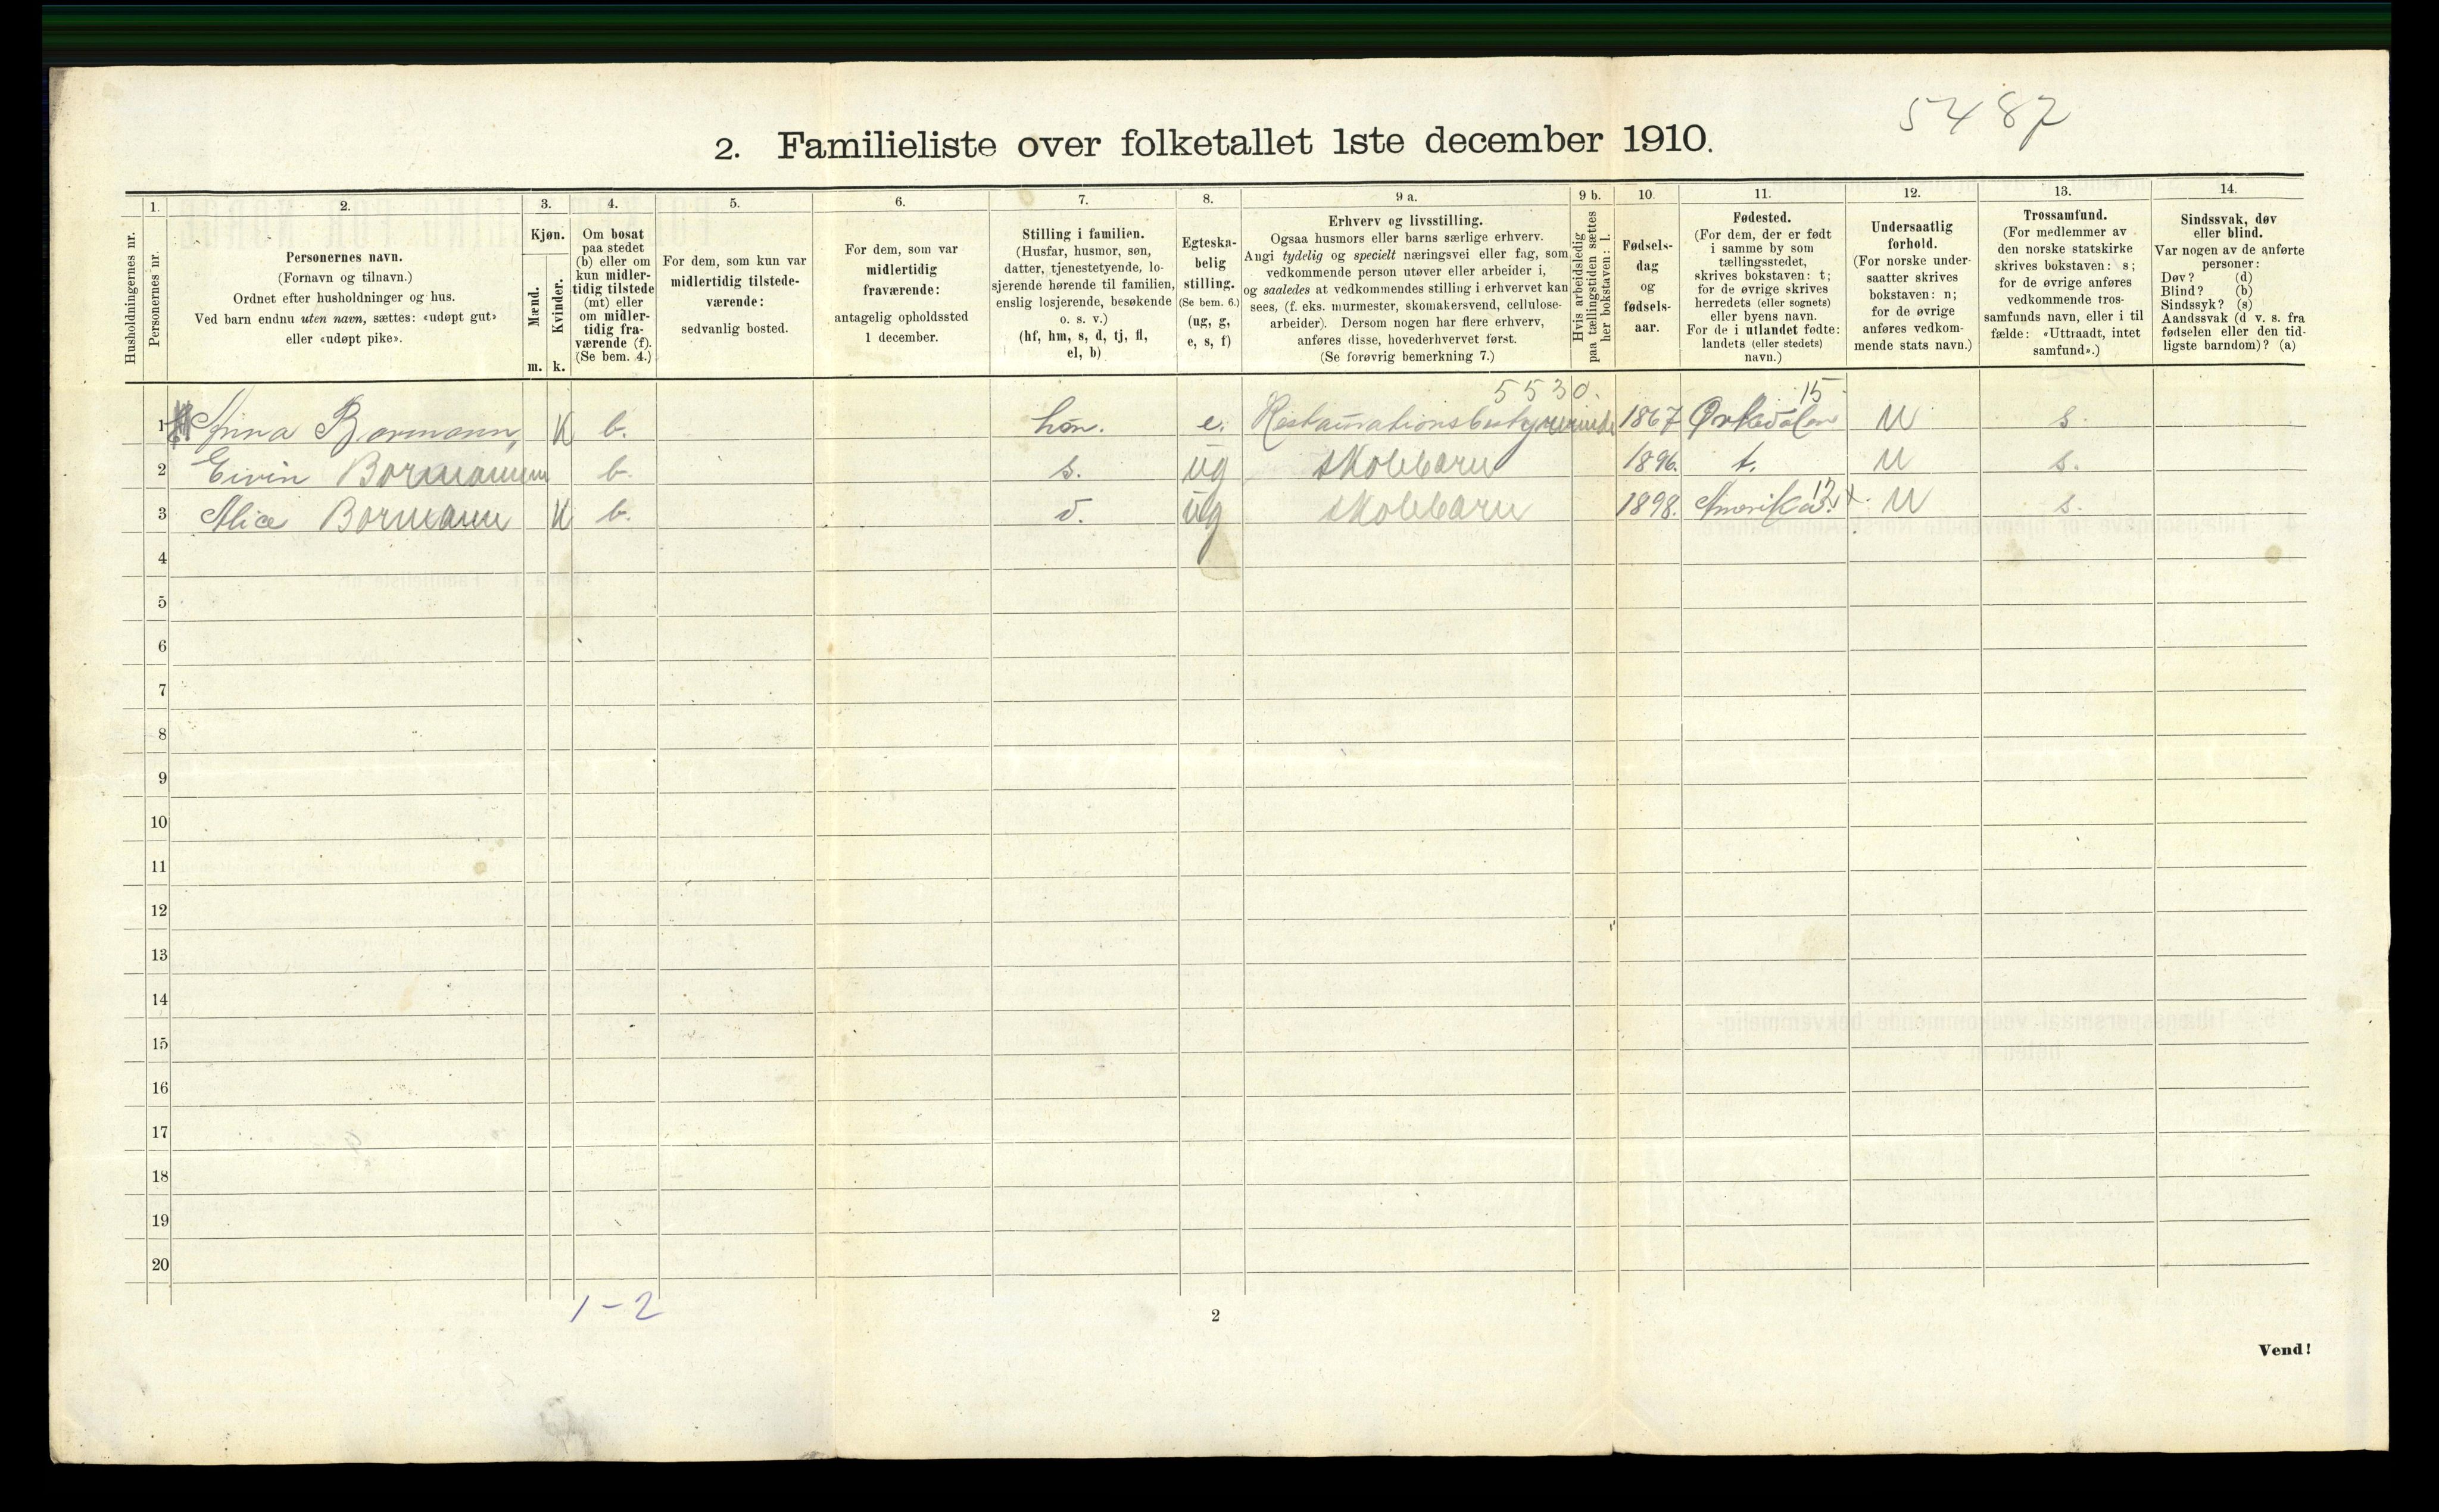 5487
2. Familieliste over folketallet 1ste december 1910.
Husholdningernes nr.
1. Personernes nr.
2. Personernes navn.
(Fornavn og tilnavn.)
Ordnet efter husholdninger og hus.
Ved barn endnu uten navn, sættes: «udøpt gut»
eller «udøpt pike».
3. Kjøn.
Mænd. Kvinder.
m. k.
4. Om bosat
paa stedet
(b) eller om
kun midler-
tidig tilstede
(mt) eller
om midler-
tidig fra-
værende (f).
(Se bem. 4.)
5. For dem, som kun var
midlertidig tilstede-
værende:
sedvanlig bosted.
6. For dem, som var
midlertidig
fraværende:
antagelig opholdssted
1 december.
7. Stilling i familien.
(Husfar, husmor, søn,
datter, tjenestetyende, lo-
sjerende hørende til familien,
enslig losjerende, besøkende
o. s. v.)
(hf, hm, s, d, tj, fl,
el, b)
8. Egteska-
belig
stilling.
(Se bem. 6.)
(ug, g,
e, s, f)
9 a. Erhverv og livsstilling.
Ogsaa husmors eller barns særlige erhverv.
Angi tydelig og specielt næringsvei eller fag, som
vedkommende person utøver eller arbeider i,
og saaledes at vedkommendes stilling i erhvervet kan
sees, (f. eks. murmester, skomakersvend, cellulose-
arbeider). Dersom nogen har flere erhverv,
anføres disse, hovederhvervet først.
(Se forøvrig bemerkning 7.)
9 b. Hvis arbeidsledig
paa tællingstiden sættes
her bokstaven: l.
10. Fødsels-
dag
og
fødsels-
aar.
11. Fødested.
(For dem, der er født
i samme by som
tællingsstedet,
skrives bokstaven: t;
for de øvrige skrives
herredets (eller sognets)
eller byens navn.
For de i utlandet fødte:
landets (eller stedets)
navn.)
12. Undersaatlig
forhold.
(For norske under-
saatter skrives
bokstaven: n;
for de øvrige
anføres vedkom-
mende stats navn.)
13. Trossamfund.
(For medlemmer av
den norske statskirke
skrives bokstaven: s;
for de øvrige anføres
vedkommende tros-
samfunds navn, eller i til
fælde: «Uttraadt, intet
samfund».)
14. Sindssvak, døv
eller blind.
Var nogen av de anførte
personer:
Døv? (d)
Blind? (b)
Sindssyk? (s)
Aandssvak (d v. s. fra
fødselen eller den tid-
ligste barndom)? (a)
5530. 15
1 Bormann, K b. hm. e. Restaurationsbestyrerinde 1867 Ørkedalen n s.
2 Eivin Bormann b. s. ug skolebarn 1896. t. n s.
3 Alice Bormann K b. d. ug skolebarn 1898. Amerika n s.
4
5
6
7
8
9
10
11
12
13
14
15
16
17
18
19
20
1-2
2
Vend!